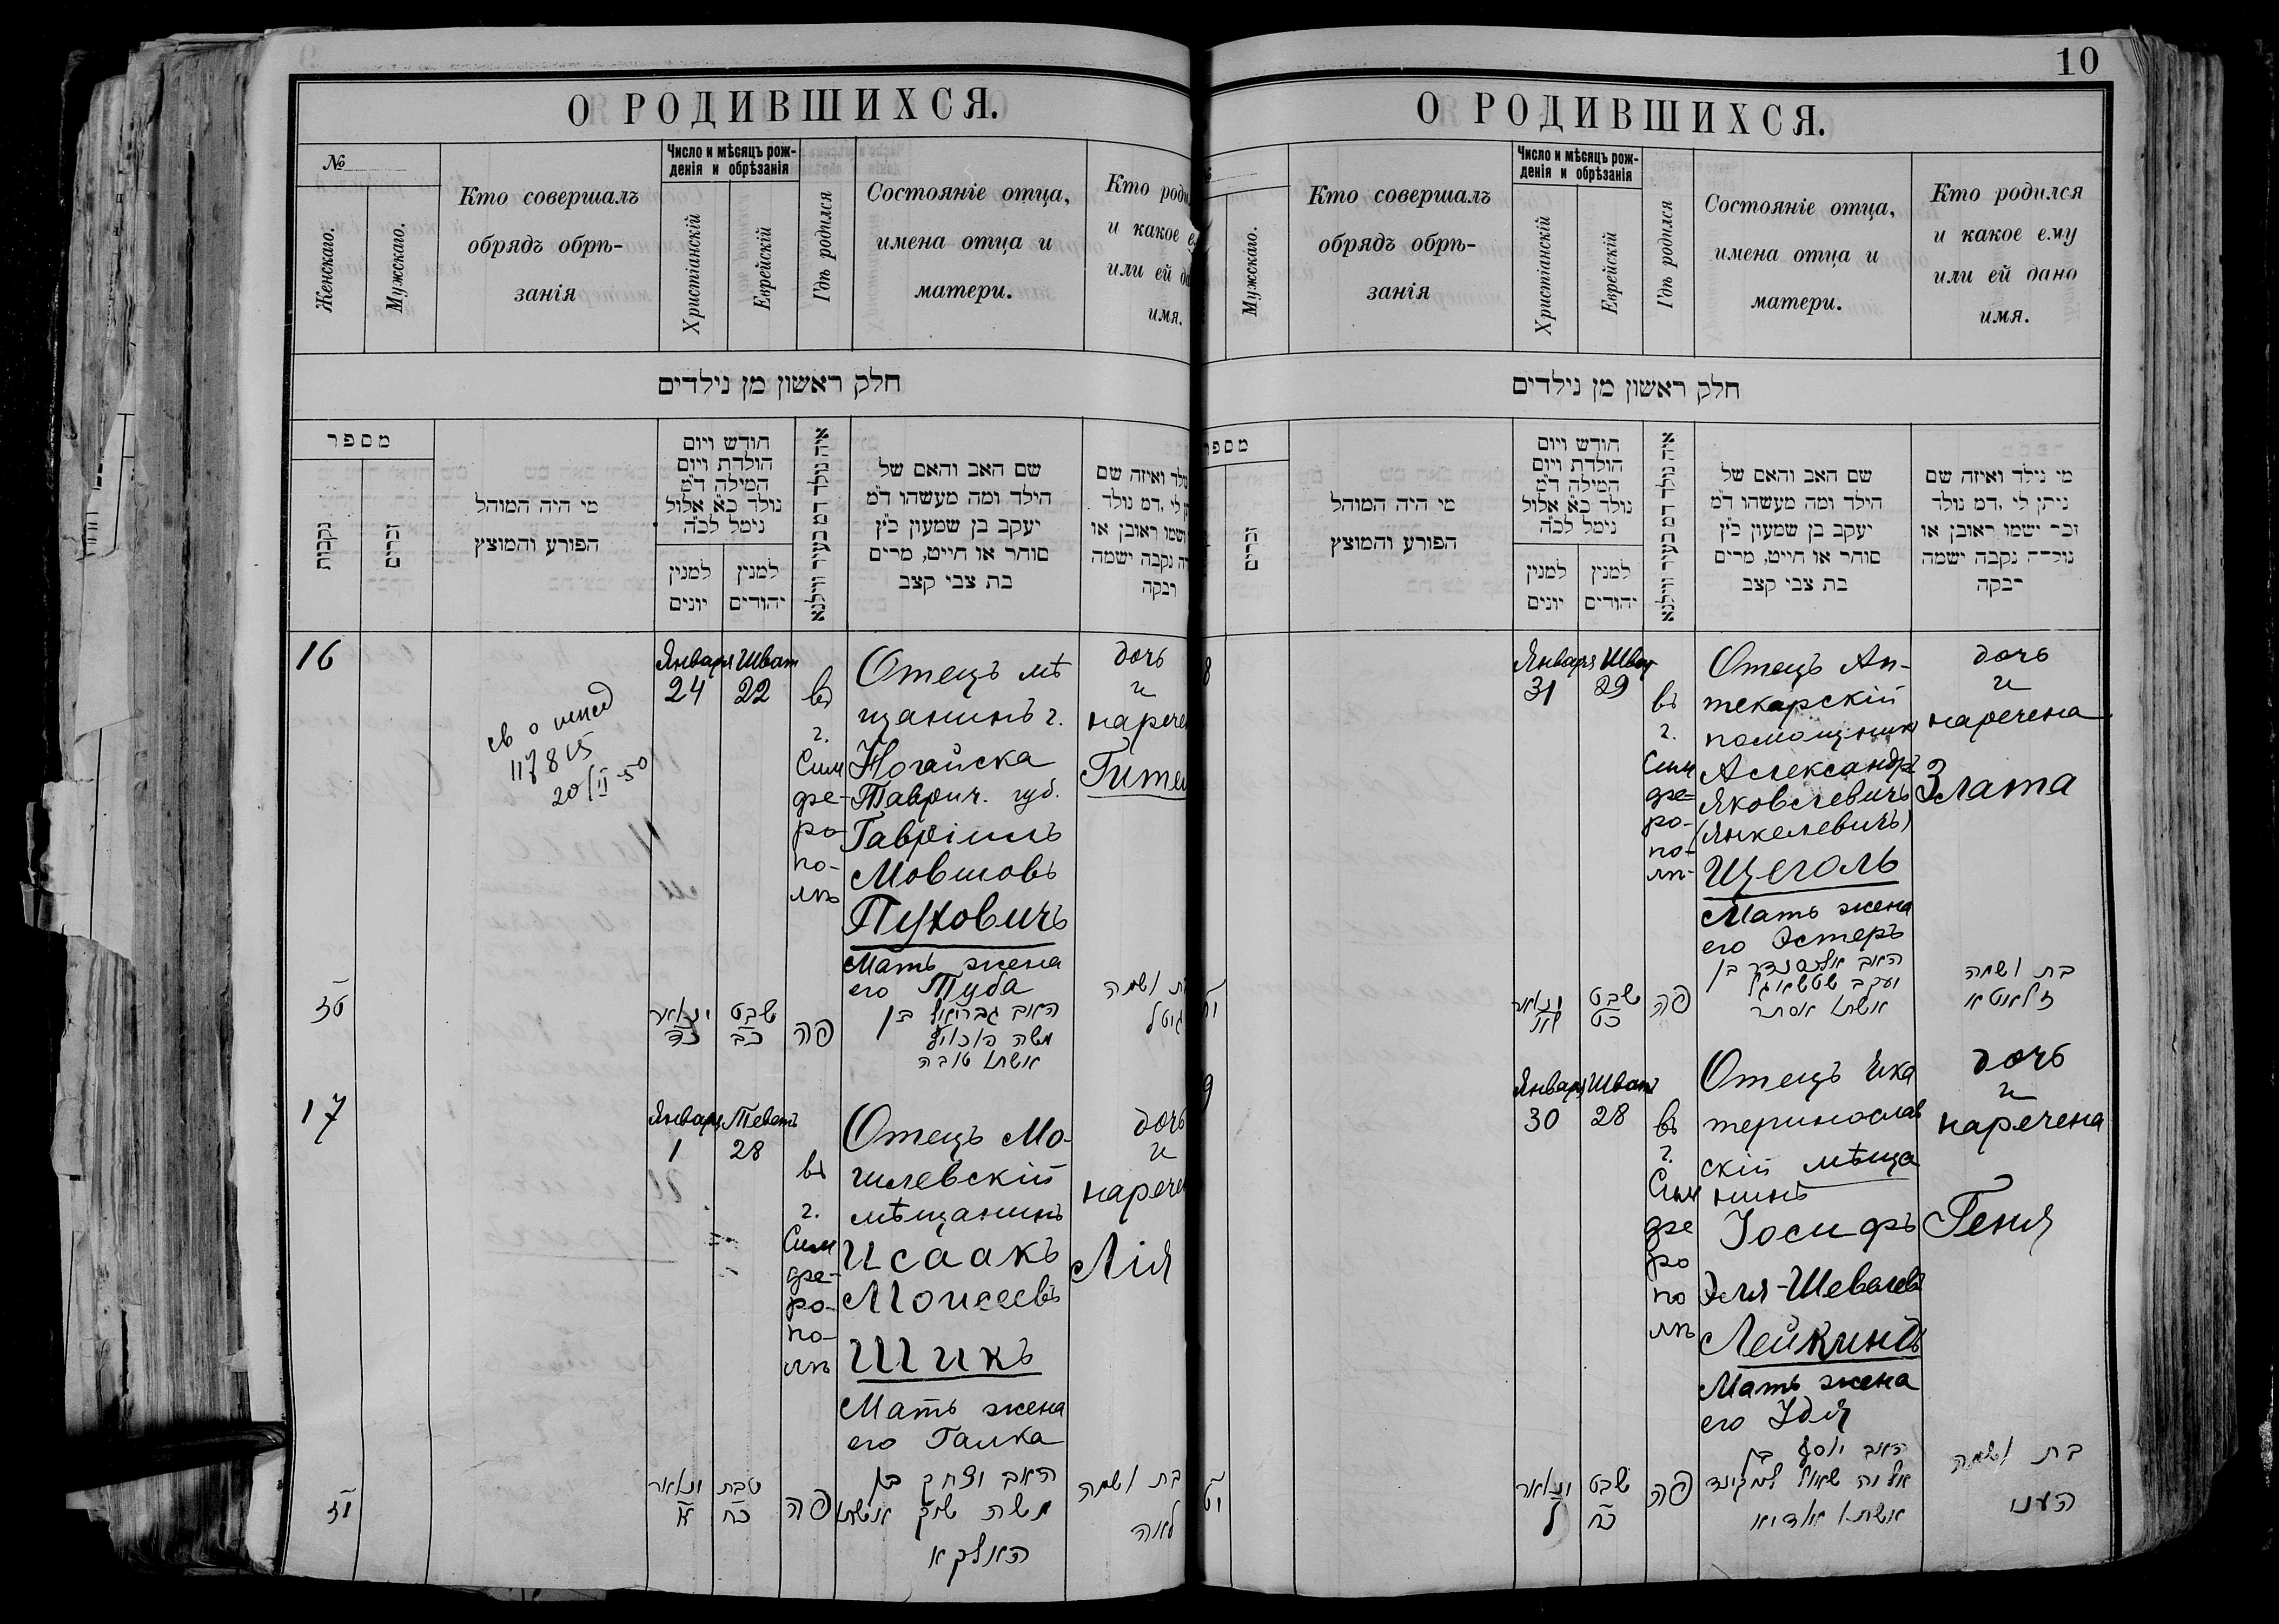 О РОДИВШИХСЯ.
№
Женскаго.
Мужскаго.
Кто совершалъ
обрядъ обрѣ-
занія
Число и мѣсяцъ рож-
денія и обрѣзанія
Христіанскій
Еврейскій
Гдѣ родился
Состояніе отца,
имена отца и
матери.
Кто роди
и какое е
или ей да
имя.
חלק ראשון מן נילדים
מספר
נקבות
זכרים
מי היה המוהל
הפורע והמוצץ
חודש ויום
הולדת ויום
המילה ד״מ
נולד כ״א אלול
נימל לכ״ה
למנין
יונים
למנין
יהודים
איה נולד דמ בעיר ווילנא
שם האב והאם של
הילד ומה מעשהו ד״מ
יעקב בן שמעון כ״ץ
סוחר או חייט, מרים
בת צבי קצב
ולד ואיזה שם
לי ,דמ נולד
ושמו ראובן או
ה נקבה ישמה
רבקה
16
св о
117815
20/II-50
Января
24
Шват
22
въ
г.
Сим
фе-
ро-
по-
лѣ
Отецъ мѣ
щанинъ г.
Ногайска
Таврич. губ.
Гавріилъ
Мовшовъ
Пуховичъ
Мать жена
его Туба
дочь
и
нарече
Гител
ינואר
כד
שבט
כב
פה
האב גבריאל בן
משה
אשתו טובה
ת ושמה
גיטל
17
Января
1
Теветъ
28
въ
г.
Сим
фе-
ро-
по-
лѣ
Отецъ Мо-
гилевскій
мѣщанинъ
Исаакъ
Моисеевъ
Шикъ
Мать жена
его Галка
дочь
и
нарече
Лія
ינואר
א
טבת
כח
פה
האב יצחק בן
משה שיק אשתו
האלקא
בת ושמה
לאה
10
О РОДИВШИХСЯ.
Мужскаго.
Кто совершалъ
обрядъ обрѣ-
занія
Число и мѣсяцъ рож-
денія и обрѣзанія
Христіанскій
Еврейскій
Гдѣ родился
Состояніе отца,
имена отца и
матери.
Кто родился
и какое ему
или ей дано
имя.
חלק ראשון מן נילדים
מספר
זכרים
מי היה המוהל
הפורע והמוצץ
חודש ויום
הולדת ויום
המילה ד״מ
נולד כ״א אלול
נימל לכ״ה
למנין
יונים
למנין
יהודים
איה נולד דמ בעיר ווילנא
שם האב והאם של
הילד ומה מעשהו ד״מ
יעקב בן שמעון כ״ץ
סוחר או חייט, מרים
בת צבי קצב
מי נילד ואיזה שם
ניתן לי ,דמ נולד
זכר ישמו ראובן או
נולדה נקבה ישמה
רבקה
8
Января
31
Шват
29
въ
г.
Сим
фе-
ро-
по-
лѣ
Отецъ Ап-
текарскій
помощникъ
Александръ
Яковлевичъ
(Янкелевичъ)
Щеголь
Мать жена
его Эстеръ
дочь
и
наречена
Злата
יח
ינואר
לא
שבט
כט
פה
האב אלכסנדר בן
יעקב
אשתו אסתר
בת ושמה
זלאטא
9
Января
30
Шват
28
въ
г.
Сим
фе
ро
по
лѣ
Отецъ Ека
теринослав
скій мѣща
нинъ
Іосифъ
Эля-Шевелевъ
Лейкиндъ
Мать жена
его Удя
дочь
и
наречена
Геня
יט
ינואר
ל
שבט
כח
פה
האב יוסף בן
אליה שאול לייקינד
אשתו אודיא
בת ושמה
העני